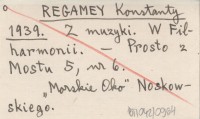 REGAMEY Konstanty
1939. Z muzyki. W Fil-
harmonii. – Prosto z
Mostu 5, nr 6.
"Morskie Oko" Noskow-
skiego.